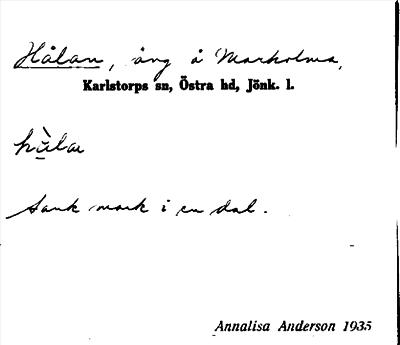 Hålan, äng å Markolma,
Karlstorps sn, Östra hd, Jönk. l.
hùla
Sank mark i en dal.
Annalisa Anderson 1935